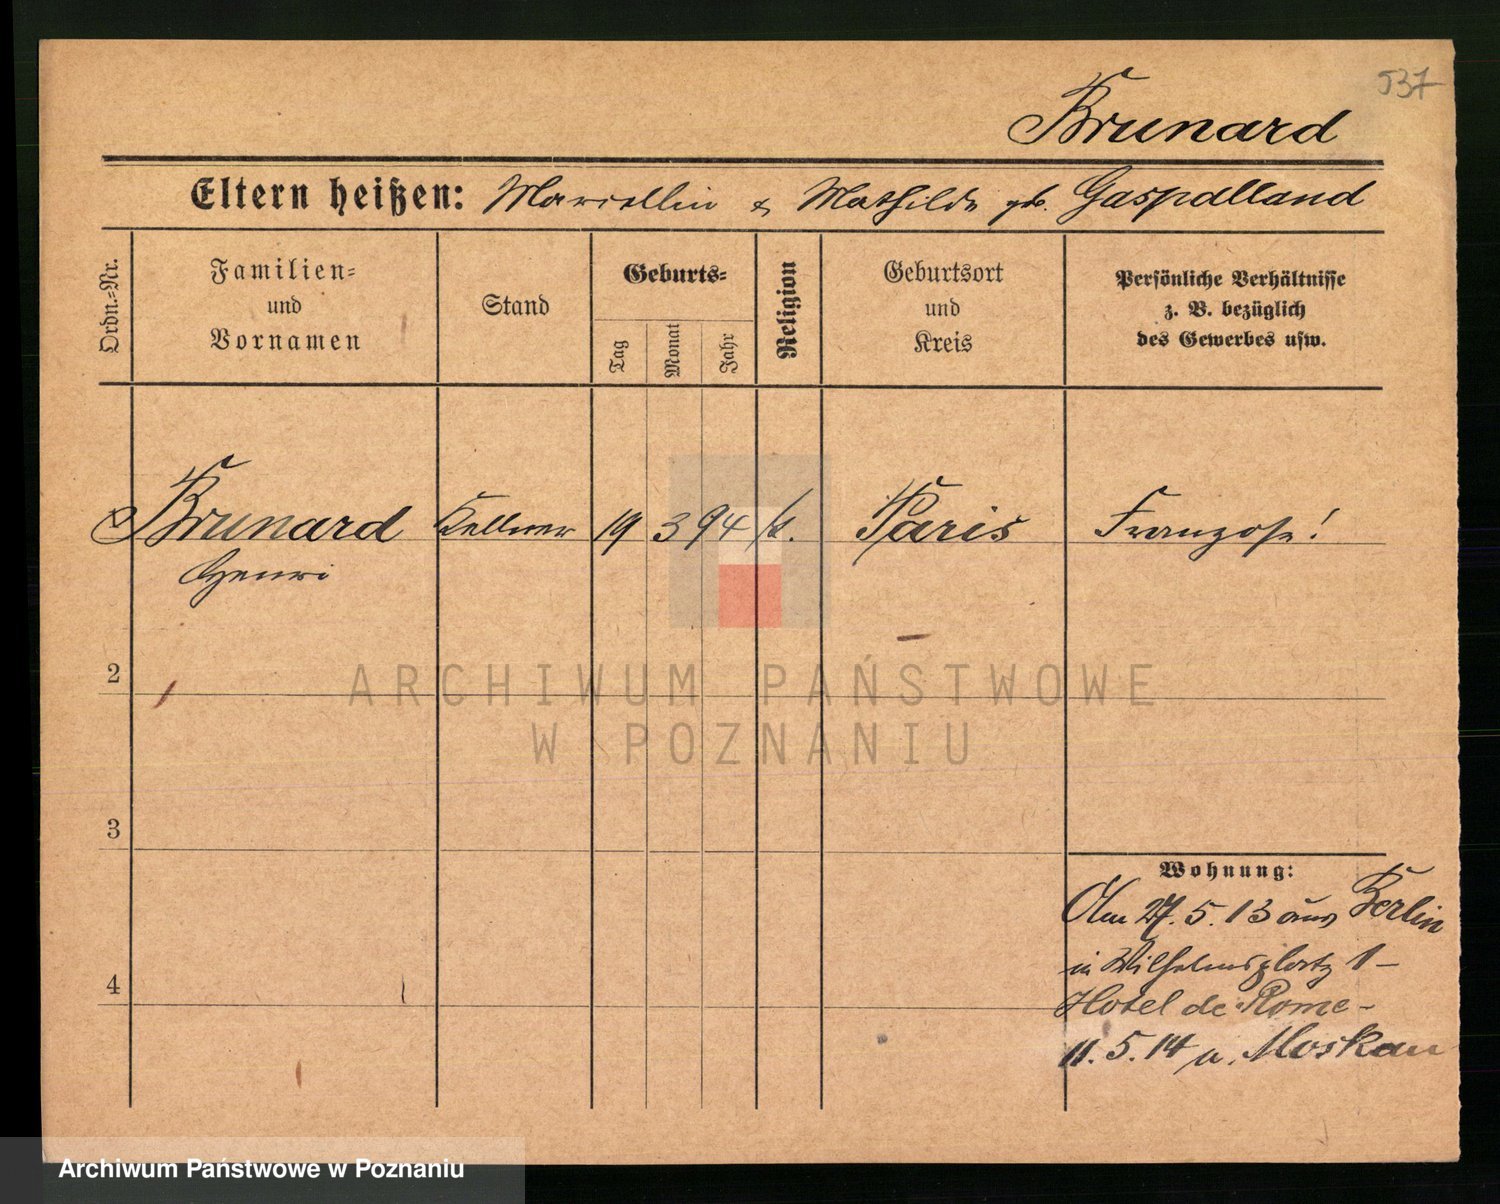 537
Brunard
Eltern heißen: Marcellin & Mathilde geb. Gaspalland
Ordn.=Nr.
Familien=
und
Vornamen
Stand
Geburts=
Tag
Monat
Jahr
Religion
Geburtsort
und
Kreis
Persönliche Verhältnisse
z. B. bezüglich
des Gewerbes usw.
Brunard Kellner 19 3 94 k. Paris Franzose!
Henri
2
ARCHIWUM PAŃSTWOWE
W POZNANIU
3
Wohnung:
Am 27. 5. 13 aus Berlin
in Wilhelmsplatz 1 –
4
Hotel de Rome –
11. 5. 14 n. Moskau
Archiwum Państwowe w Poznaniu